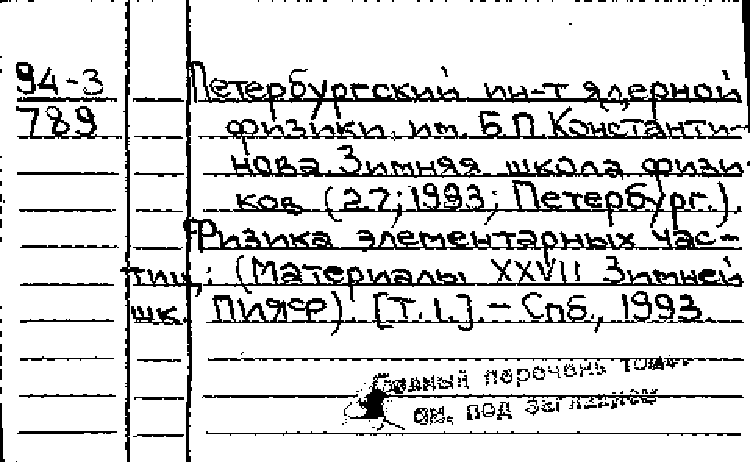 94-3
789
Петербургский ин-т ядерной
физики им. Б.П. Константи-
нова. Зимняя школа физи-
ков (27; 1993; Петербург.).
Физика элементарных час-
тиц: (Материалы XXVII Зимней
шк. ПИЯФ). [Т. 1.]. - Спб., 1993.
Полный перечень томов
см. под заглавием